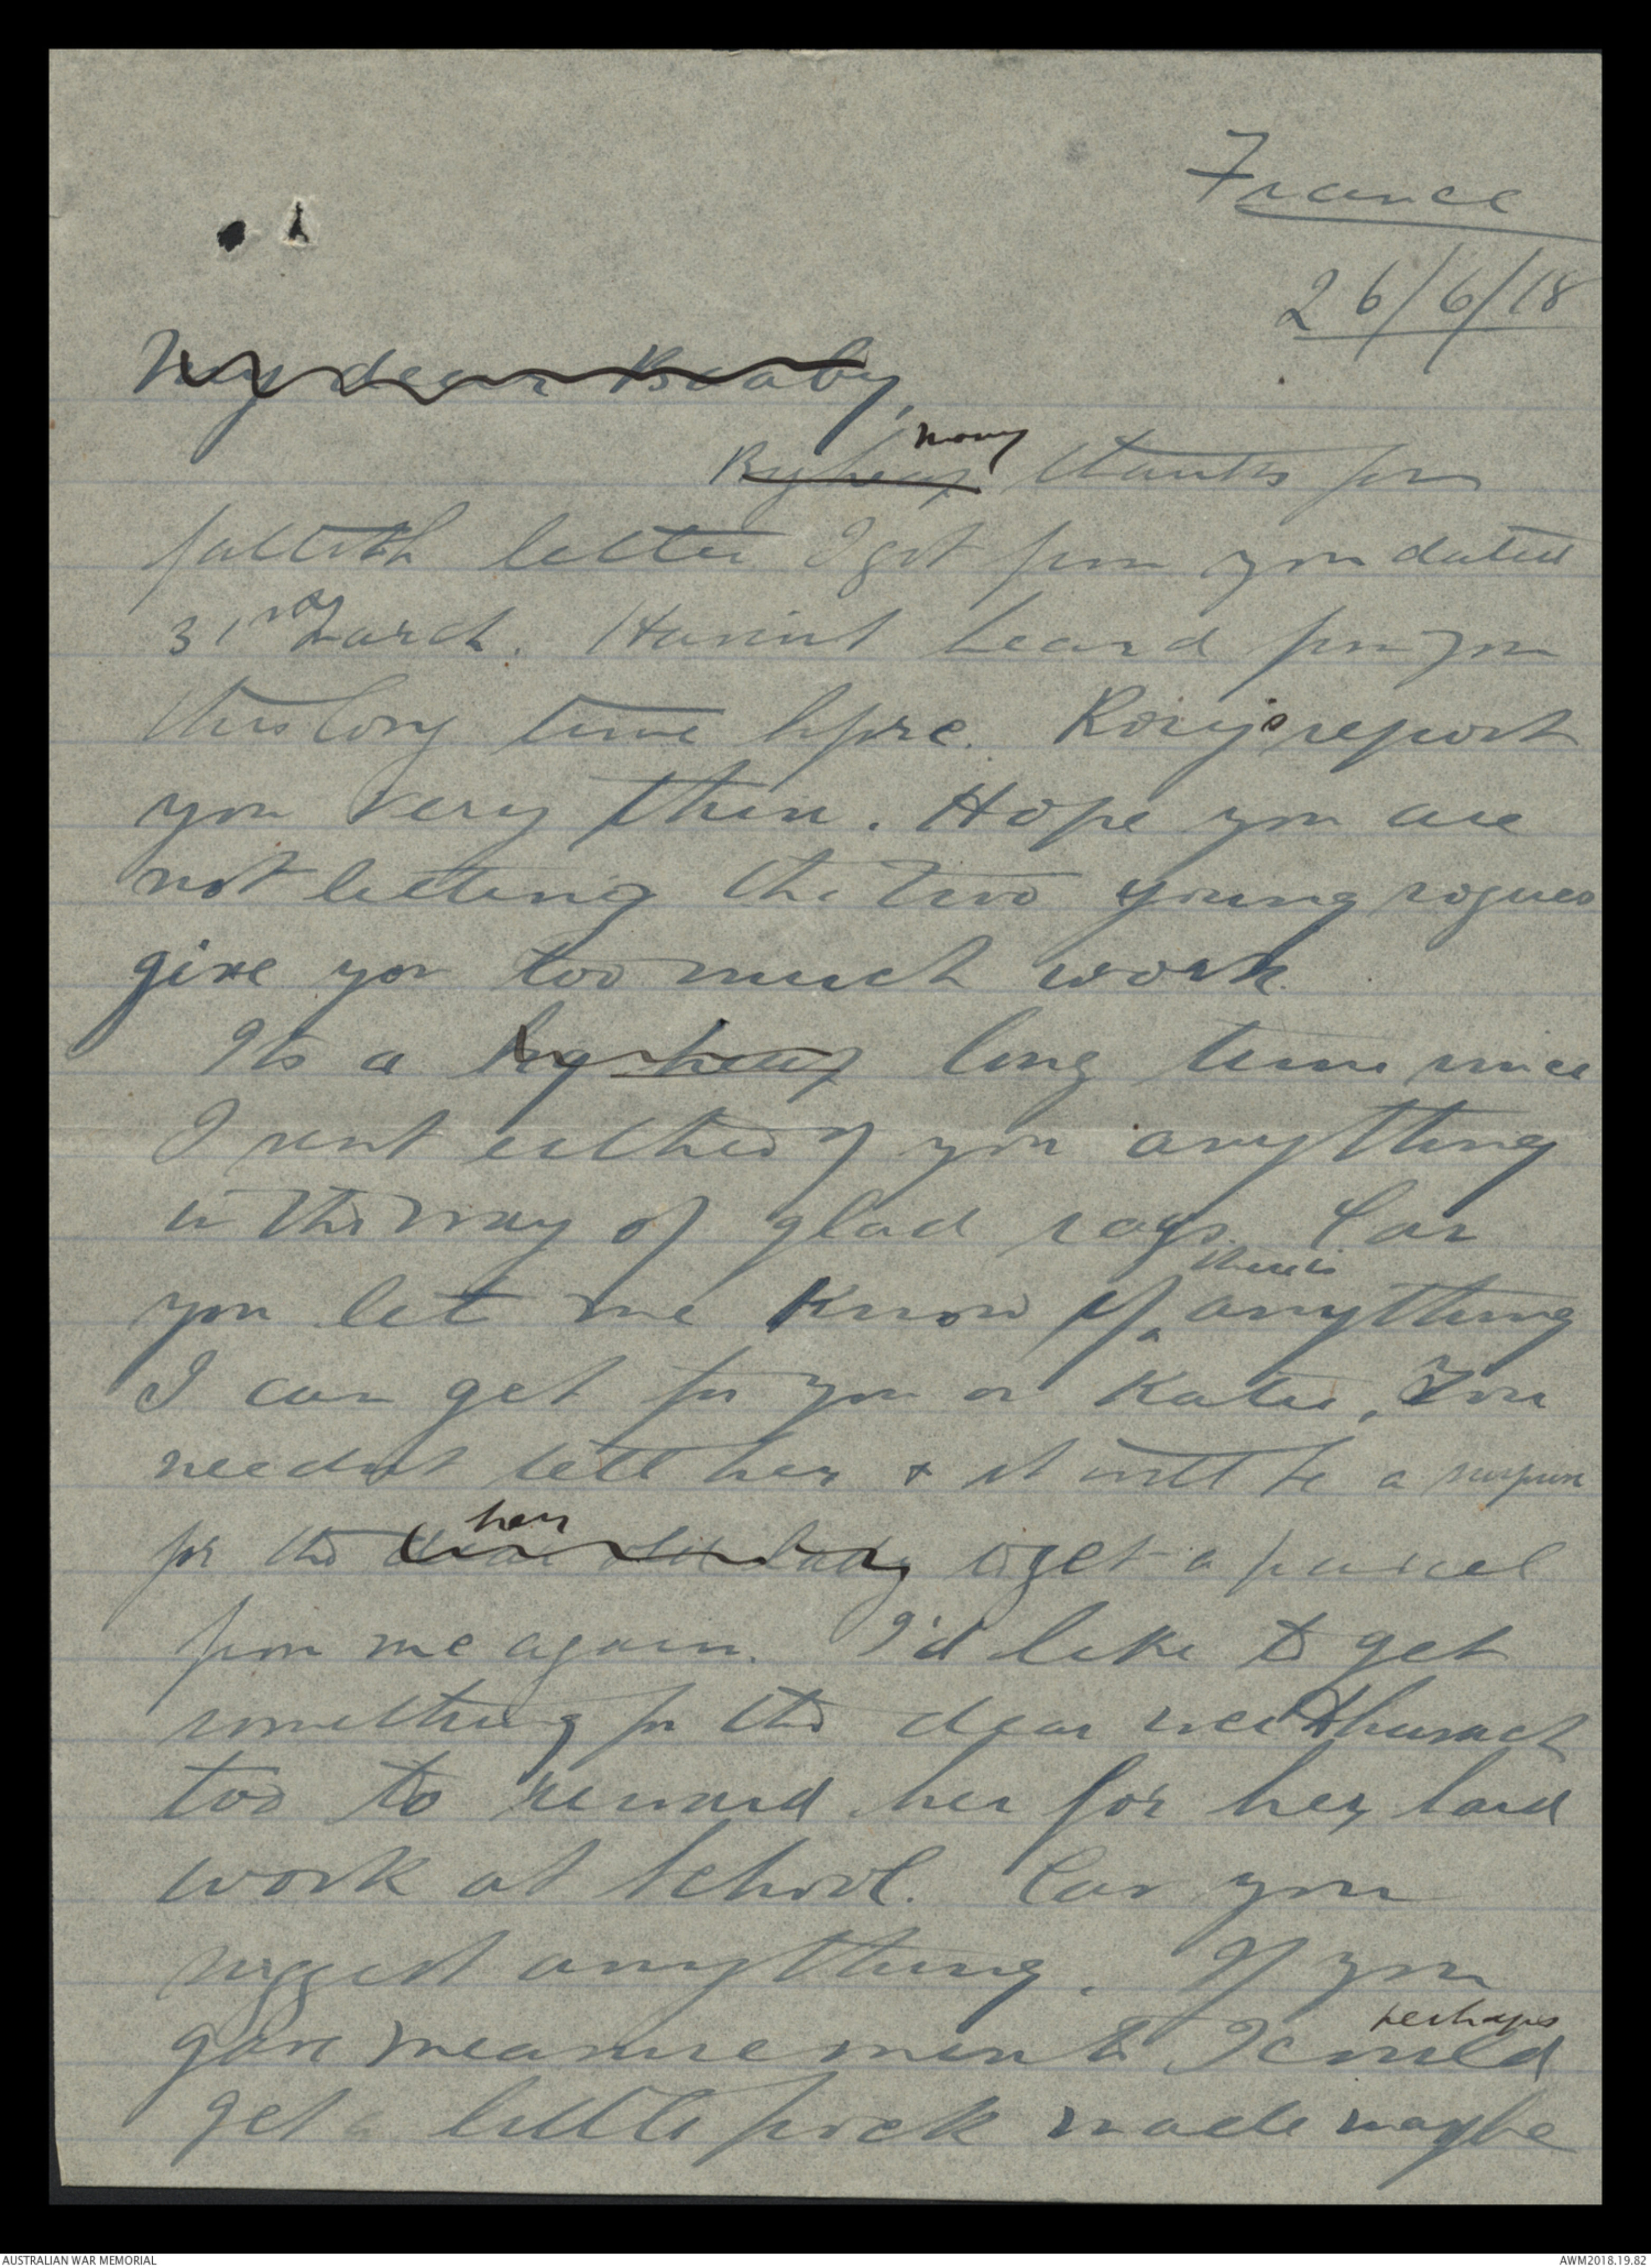 France
26/6/18
My dear Beaby,
By heay many thanks for
fattish letter I got from you dated
31st March. Havint heard from you
this long time before. Rosey's report
you very thin. Hope you are
not letting the two young rogues
give you too much work.
Its a by heay long time since
I sent either of you anything
in the way of glad rags. Can
you let me know if there is anything
I can get for you or Katie. You
neednt tell her & it will be a surprise
for the dear old lady her to get a parcel
from me again. I'd like to get
something for the dear wee
too to reward her for her hard
work at school. Can you
suggest anything. If you
gave measurements I could perhaps
get a little frock made maybe
AUSTRALIAN WAR MEMORIAL
AWM2018.19.82